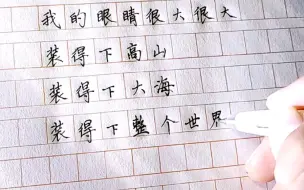 我的眼睛很大很大
装得下高山
装得下大海
装得下整个世界